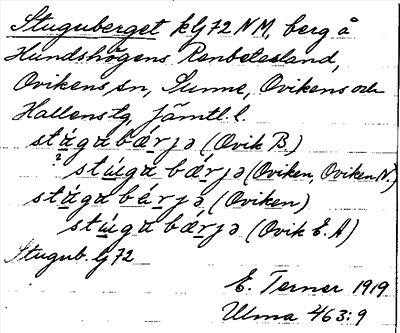 Stuguberget kLj 72 NM, berg å
Hundshögens Renbetesland,
Ovikens sn, Sunne, Ovikens och
Hallens tg Jämtl. l.
stúga bǽrjə (Ovik B.)
? stúga bǽrjə (Oviken, Oviken N.)
stúga bǽrjə (Oviken)
stúga bǽrjə (Ovik E. A)
Stugub. Lj 72
E. Terner 1919
Ulma 463:9